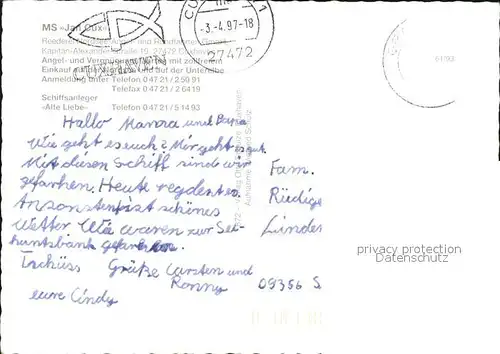 MS »Jan Cux«
Kapitän-Alexander-Straße 16, 27472 Cuxhaven
Angel- und Vergnügungsfahrten mit zollfreiem
Einkauf auf der Nordsee und auf der Unterelbe
Anmeldung unter Telefon 0 47 21 / 2 50 91
Telefax 0 47 21 / 2 64 19
Schiffsanleger
»Alte Liebe« Telefon 0 47 21 / 5 14 93
CUXHAVEN
-3.-4.97-18
27472
Hallo Mama und Papa
Wie geht es euch? Mir geht es gut.
Mit diesen Schiff sind wir
gefarhen. Heute regdent es.
Ansonsten ist schönes
Wetter Wir waren zur See-
huntsbank gefarhen.
Tschüss Grüße Carsten und
Ronny
eure Cindy
Fam.
Rüdige
Linder
09356 S
privacy protection
Datenschutz